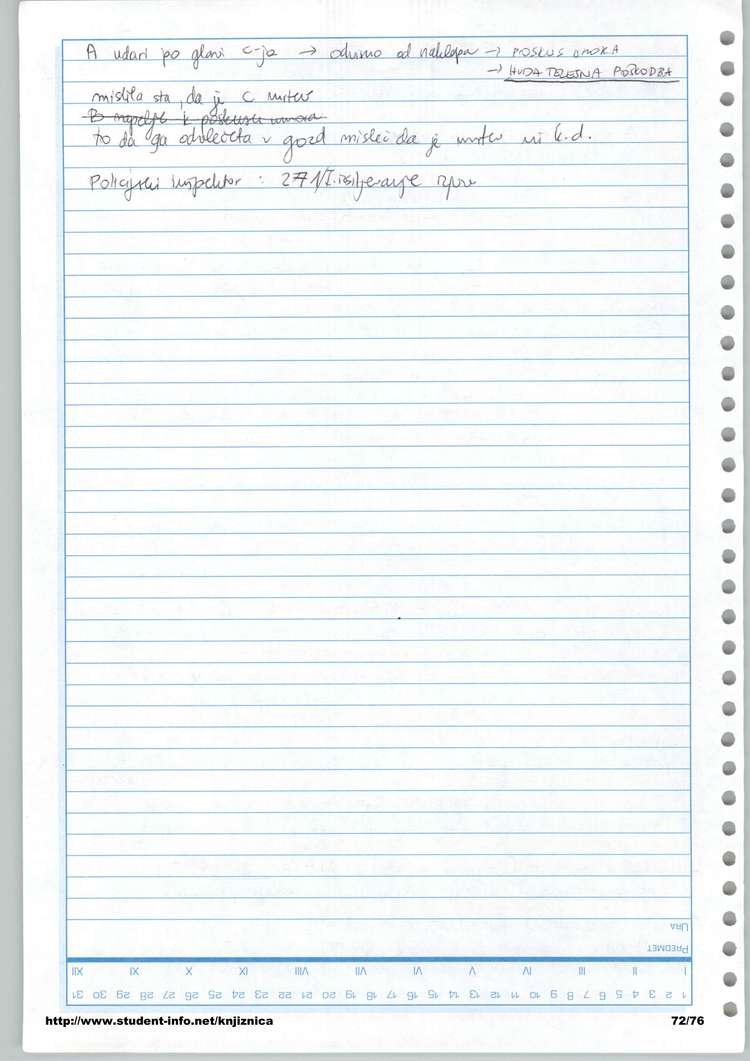 A udari po glavi C-ja → odvisno od naklepa → POSKUS UMORA
→ HUDA TELESNA POŠKODBA
mislila sta, da je C mrtev
B napelje k poskusu umora
to da ga odvlečeta v gozd misleč da je mrtev ni k.d.
Policijski inšpektor : 271/I. izsiljevanje izjav
URA
PREDMET
I II III IV V VI VII VIII IX X XI XII
1 2 3 4 5 6 7 8 9 10 11 12 13 14 15 16 17 18 19 20 21 22 23 24 25 26 27 28 29 30 31
http://www.student-info.net/knjiznica 72/76